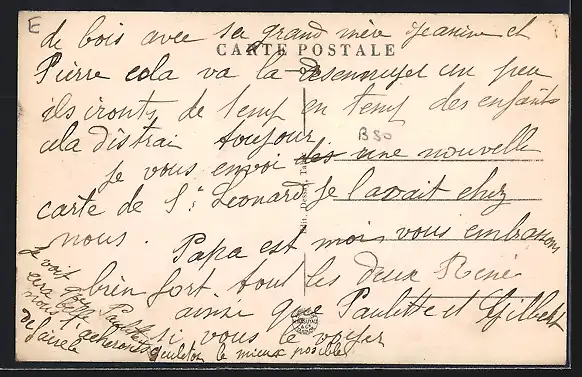 E
de bois avec sa grand mère Jeanine et
CARTE POSTALE
Pierre cela va la desennuyet un peu
ils iront de temp en temp des enfants
cela distrai toujour
B50
je vous envoi des une nouvelle
carte de St Leonard je l'avait chez
nous. Papa est moi vous embrassons
bien fort tout les deux René
ainsi que Paulette et Gilbert
si vous le voyer
je voit que Paulette
sera
nous l'acheterons
de le mieux posible